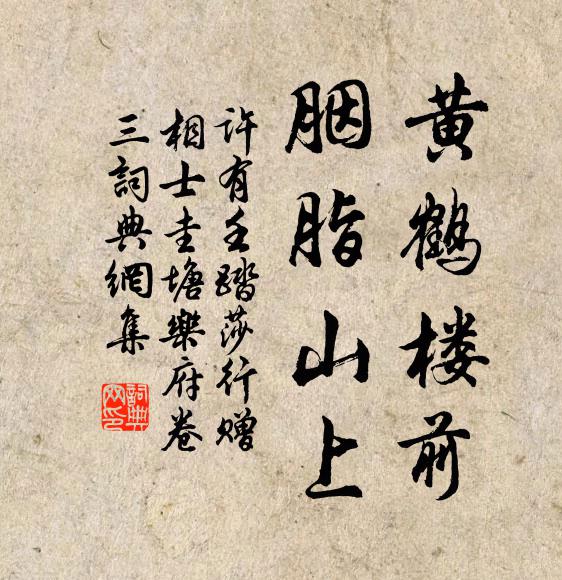 黄鹤楼前
胭脂山上
许有壬踏莎行赠
相士圭塘樂府卷
三詞典網集
詞典
网印